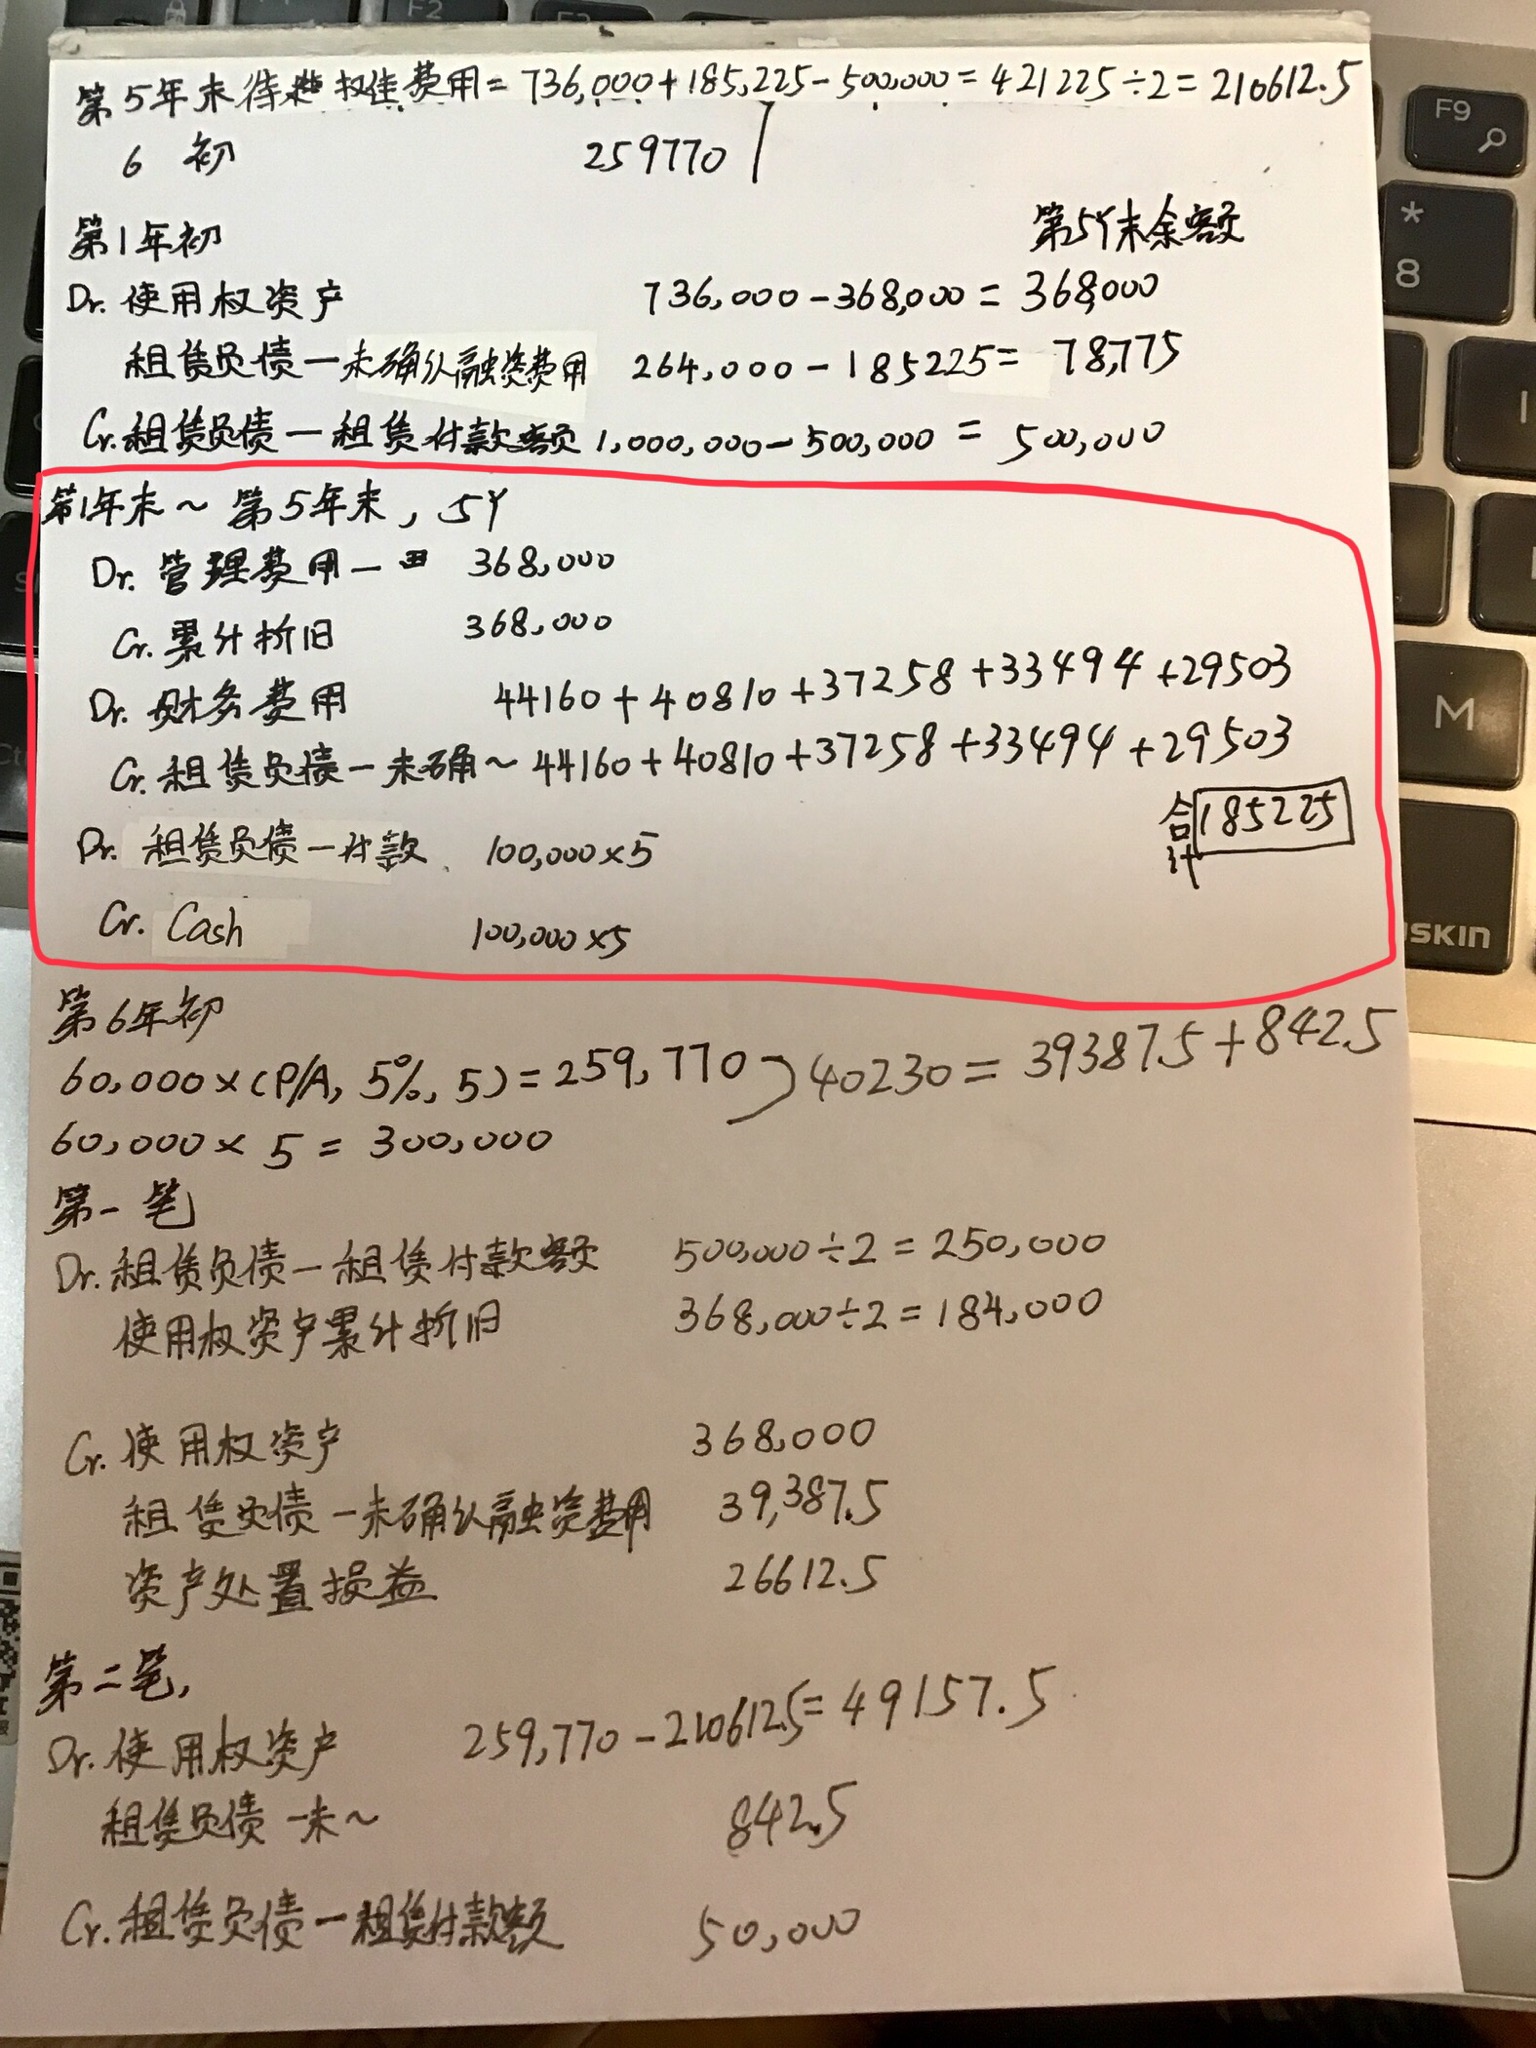 F2
F9
*
8
M
ISKIN
第5年末待 权住费用=736,000+185,225-500,000=421225÷2=210612.5
6 初 259770
第1年初 第5Y末余额
Dr. 使用权资产 736,000-368,000=368,000
租赁负债-未确认融资费用 264,000-185225=78,775
Cr. 租赁负债-租赁付款额 1,000,000-500,000=500,000
第1年末~第5年末, 5Y
Dr. 管理费用- 368,000
Cr. 累计折旧 368,000
Dr. 财务费用 44160+40810+37258+33494+29503
Cr. 租赁负债-未确~ 44160+40810+37258+33494+29503
合计 185225
Dr. 租赁负债-付款 100,000×5
Cr. Cash 100,000×5
第6年初
60,000×(P/A, 5%, 5)=259,770 40230=39387.5+842.5
60,000×5=300,000
第一笔
Dr. 租赁负债-租赁付款额 500,000÷2=250,000
使用权资产累计折旧 368,000÷2=184,000
Cr. 使用权资产 368,000
租赁负债-未确认融资费用 39,387.5
资产处置损益 26612.5
第二笔,
Dr. 使用权资产 259,770-210612.5=49157.5
租赁负债-未~ 842.5
Cr. 租赁负债-租赁付款额 50,000